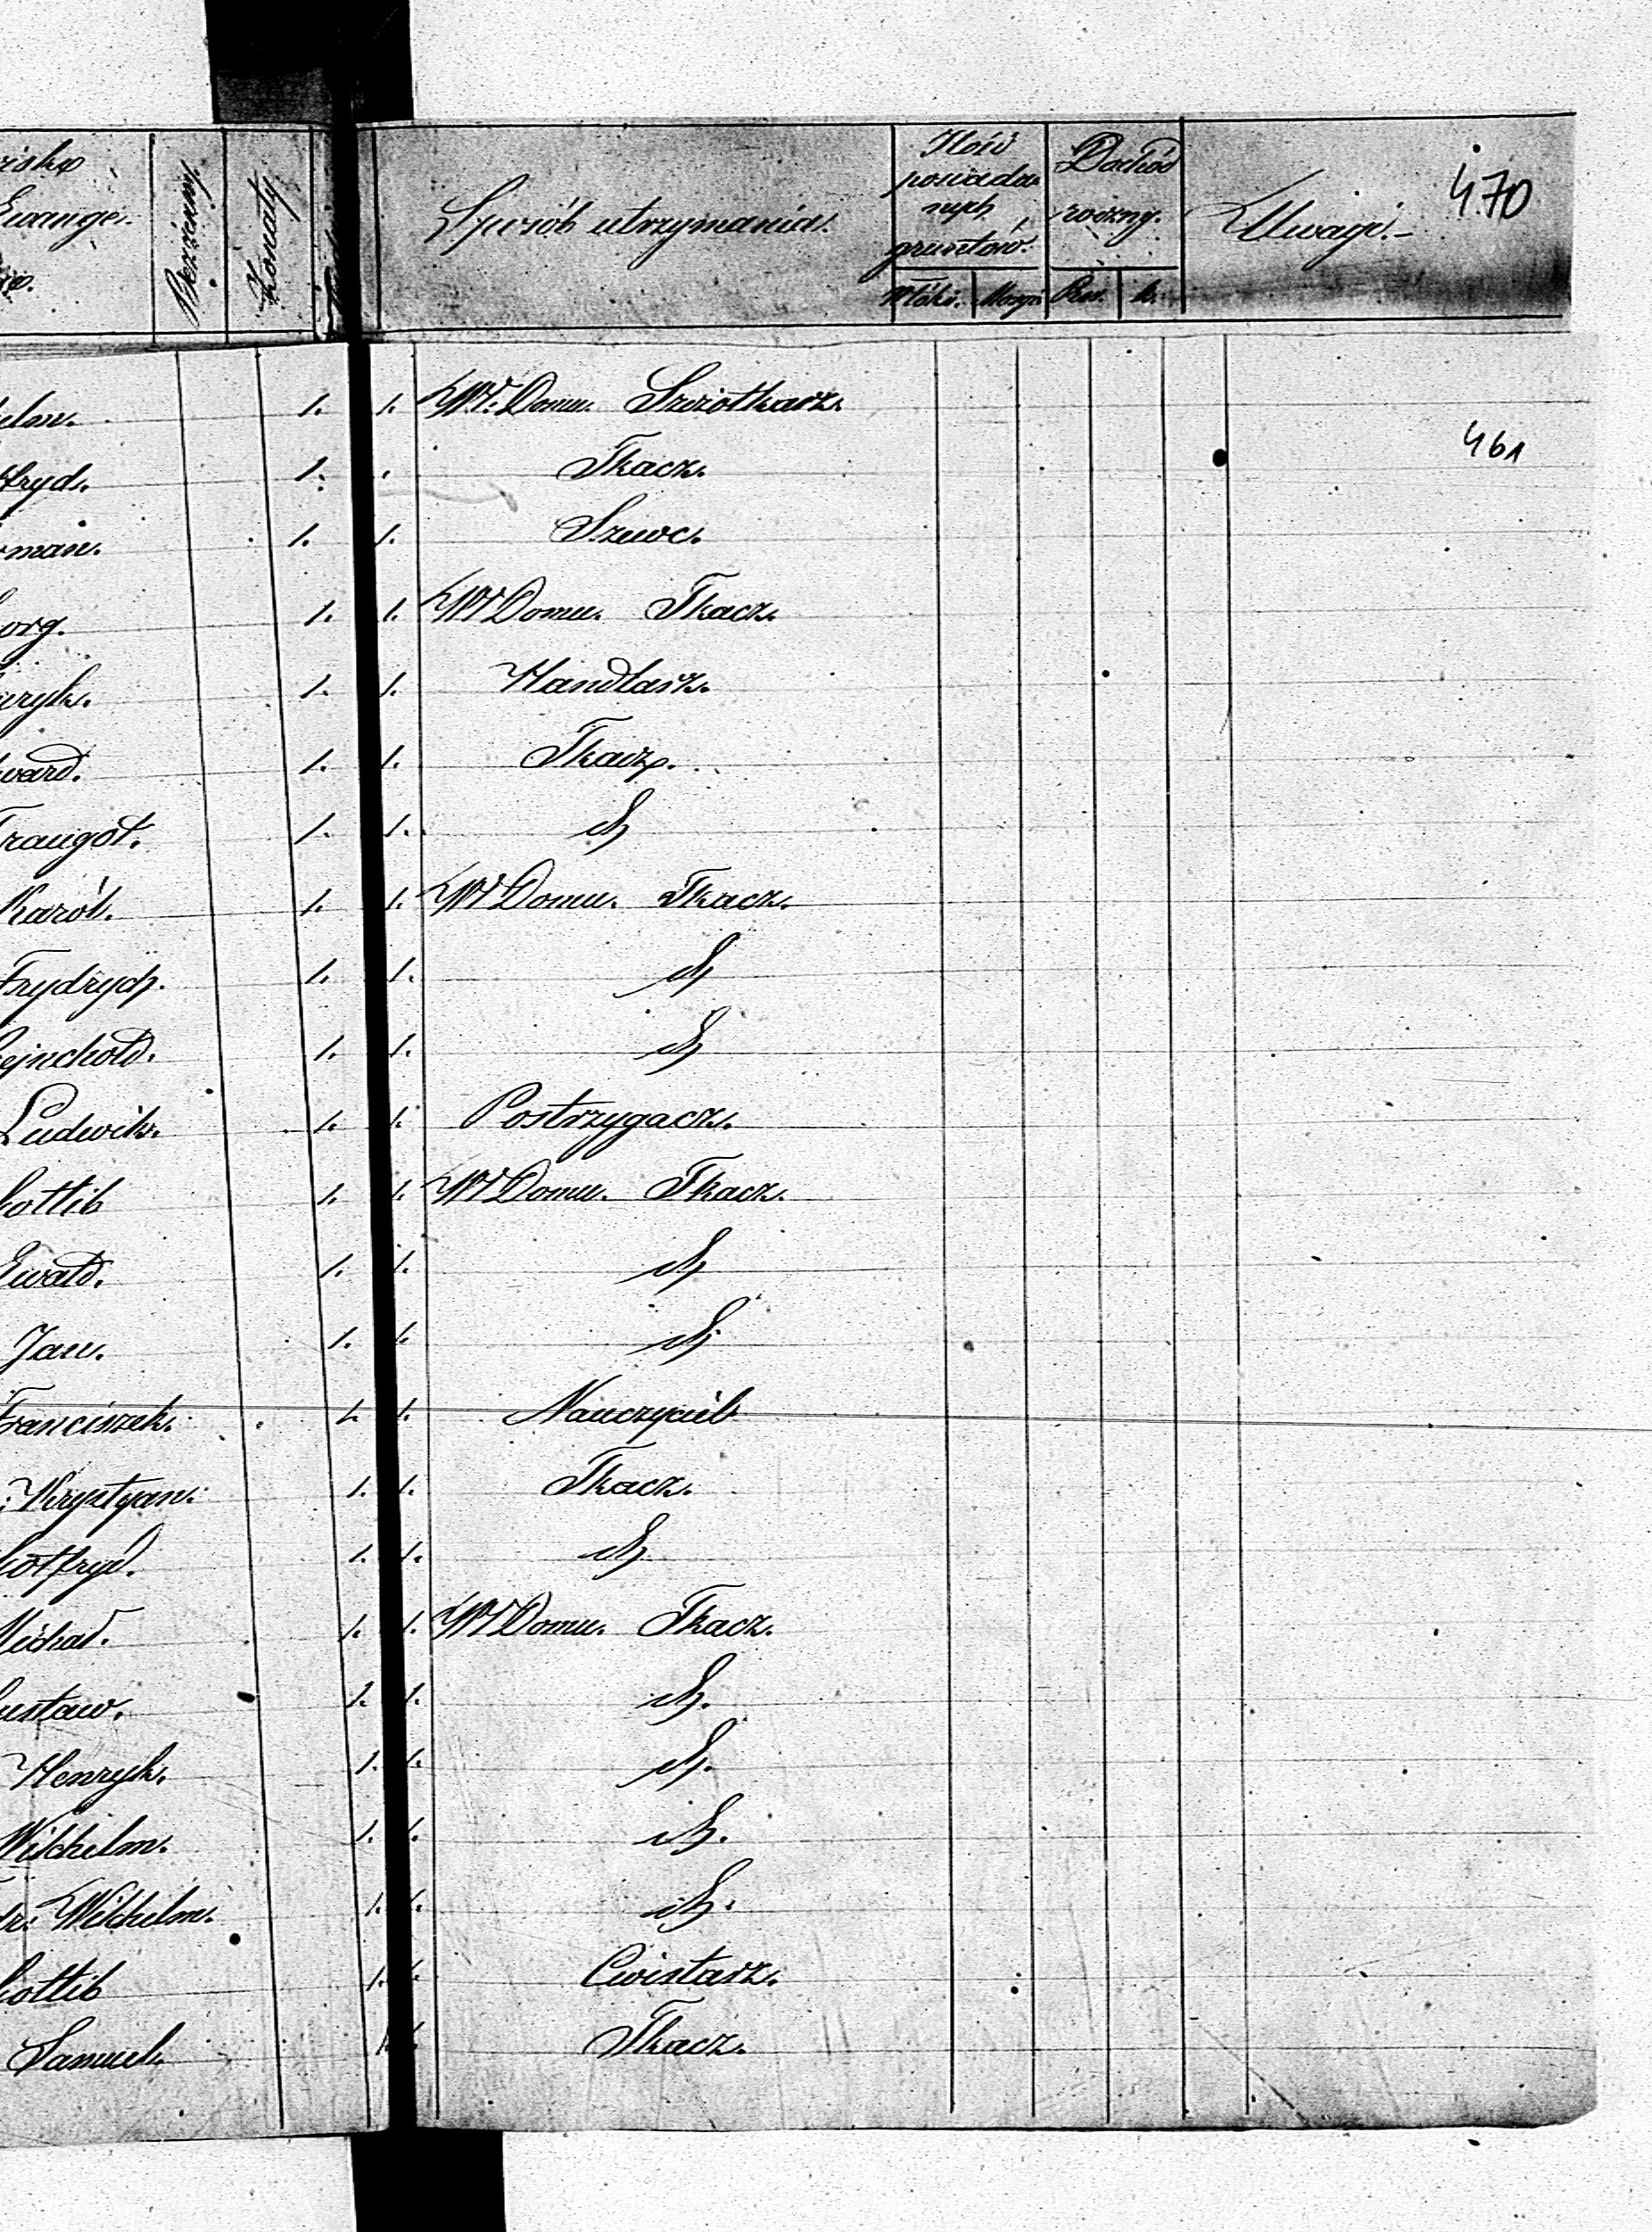 Bezżenny
Żonaty
Sposób utrzymania.
Ilość
posiada
nych
gruntów.
Włók. Morgi
Dochód
roczny.
Rsr. k.
Uwagi.-
470
461
elm. 1. 1. W Domu. Szczotkarz.
fryd. 1. . Tkacz.
man. 1. 1. Szewc.
org. 1. 1. W Domu. Tkacz.
ryk. 1. 1. Handlarz.
ward. 1. 1. Tkacz.
Traugot. 1. 1. d
Karól. 1. 1. W Domu. Tkacz.
Frydrych. 1. 1. d
ejnchold. 1. 1. d
Ludwik. 1. 1. Postrzygacz.
ottlib 1. 1. W Domu. Tkacz.
Ewald. 1. 1. d
Jan. 1. 1. d
Franciszek. 1. 1. Nauczyciel
Krystyan. 1. 1. Tkacz.
otfryd. 1. 1. d
Michał. 1. 1. W Domu. Tkacz.
ustaw. 1. 1. d.
Henryk. 1. 1. d.
Wilchelm. 1. 1. d.
Wilchelm. 1. 1. d.
ottlib 1. 1. Cwistarz.
Samuel. 1. 1. Tkacz.